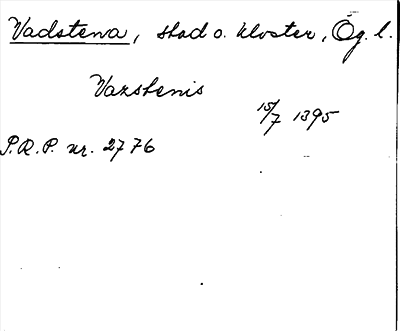 Vadstena, stad o. kloster, Ög. l.
Vazstenis
15/7 1395
P.R.P. nr. 2776